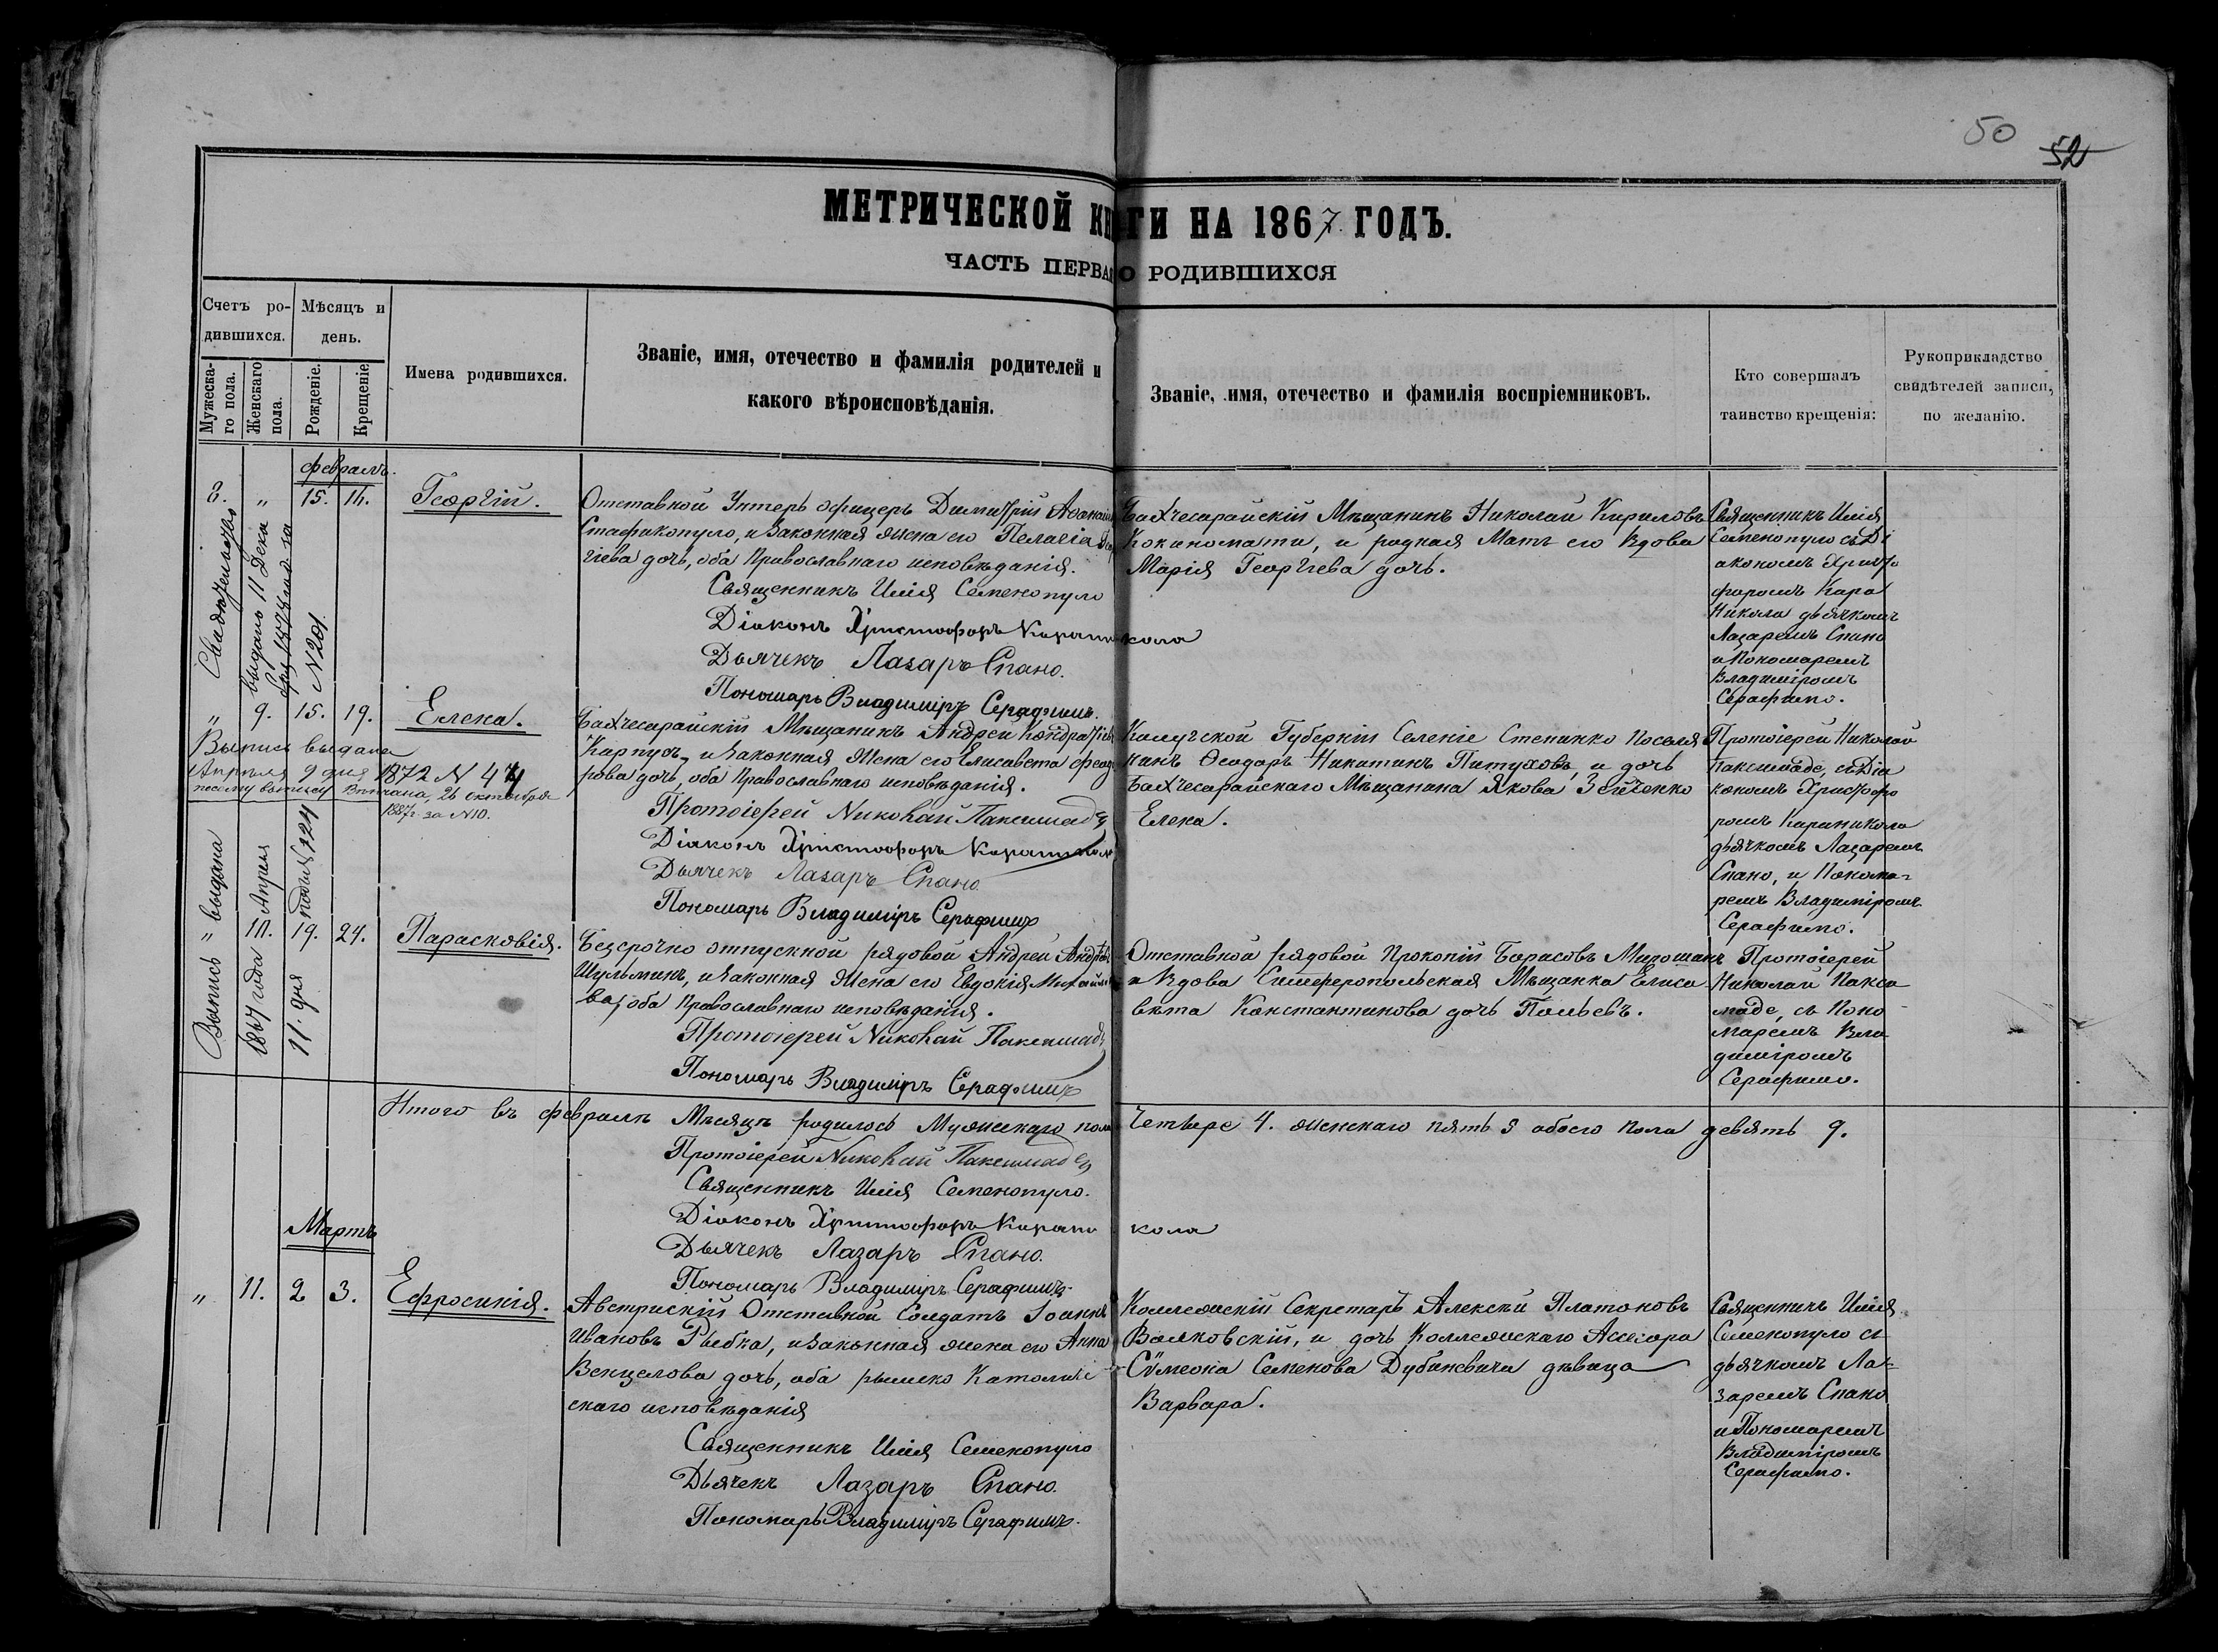 50
52
МЕТРИЧЕСКОЙ КНИГИ НА 1867 ГОДЪ.
ЧАСТЬ ПЕРВАЯ О РОДИВШИХСЯ
Счетъ ро-
дившихся.
Мужеска-
го пола.
Женскаго
пола.
Мѣсяцъ и
день.
Рожденіе.
Крещеніе
Имена родившихся.
Званіе, имя, отечество и фамилія родителей и
какого вѣроисповѣданія.
Званіе, имя, отечество и фамилія воспріемниковъ.
Кто совершалъ
таинство крещенія:
Рукоприкладство
свидѣтелей записи,
по желанію.
февраль.
" 15. 16. Георгій.
Отставной Унтеръ офицеръ Димитрій
Стафикопуло, и Законная жена его Пелагіа
гіева дочь, оба Православнаго исповѣданія.
Священникъ Илія Семенопуло
Діаконъ Христофоръ Караникола
Дьячекъ Лазаръ Спано.
Пономарь Владиміръ Серафимъ.
Бахчесарайскій Мѣщанинъ Николай Кириловъ
Кокиномати, и родная Мать его Вдова
Марія Георгіева дочь.
Священникъ Илія
Семенопуло съ Ді
акономъ Христо
форомъ Кара
Никола дьячкомъ
Лазаремъ Спано
и Пономаремъ
Владиміромъ
Серафимо.
Свидѣтельство
выдано 11 Дека
за
N 201.
" 9. 15. 19. Елена.
Бахчесарайскій Мѣщанинъ Андрей Кондратіевъ
Карпусь, и Законная Жена его Елисавета Феодо
рова дочь, оба Православнаго исповѣданія.
Протоіерей Николай Паксимаде
Діаконъ Христофоръ Караникола
Дьячекъ Лазаръ Спано
Пономарь Владиміръ Серафимъ
Калужской Губерніи Селеніе Стенинко Поселя
нинъ Ѳеодоръ Никитинъ Питуховъ, и дочь
Бахчесарайскаго Мѣщанина Якова Зейченко
Елена.
Протоіерей Николай
Паксимаде, съ Діа
кономъ Христофо
ромъ Караникола
дьячкомъ Лазаремъ
Спано, и Понома-
ремъ Владиміромъ
Серафимо.
Выпись выдана
Апрѣля 9 дня 1872 N 44
26 октября
1887г. за N10.
" 10. 19. 24. Парасковія.
Безсрочно отпускной рядовой Андрей Андрѣев
Шульминъ, и Законная Жена его Евдокія Михайло
ва, оба Православнаго исповѣданія.
Протоіерей Николай Паксимаде
Пономарь Владиміръ Серафимъ
Отставной рядовой Прокопій Борисовъ Мирошанъ
и Вдова Симферопольская Мѣщанка Елиса
вѣта Константинова дочь
Протоіерей
Николай Пакси
маде, съ Поно
маремъ Вла
диміромъ
Серафимо.
Выпись выдана
1867 года Апрѣля
11 дня подъ N 124
Итого въ февралѣ Мѣсяцѣ родилось Мужескаго пола Четыре 4. женскаго пять 5 обоего пола девять 9.
Протоіерей Николай Паксимаде
Священникъ Илія Семенопуло.
Діаконъ Христофоръ Караникола
Дьячекъ Лазаръ Спано.
Пономарь Владиміръ Серафимъ.
Мартъ
" 11. 2 3. Ефросинія.
Австрискій Отставной Солдатъ Іоаннъ
Ивановъ Рыбка, и Законная жена его Анна
Венцелова дочь, оба римско Католиче
скаго исповѣданія
Священникъ Илія Семенопуло
Дьячекъ Лазаръ Спано.
Пономарь Владиміръ Серафимъ.
Коллежскій Секретарь Алексѣй Платоновъ
Волковскій, и дочь Коллежскаго Ассесора
Сѵмеона Семенова Дубиневича дѣвица
Варвара.
Священникъ Илія
Семенопуло съ
дьячкомъ Ла-
заремъ Спано
и Пономаремъ
Владиміромъ
Серафимо.